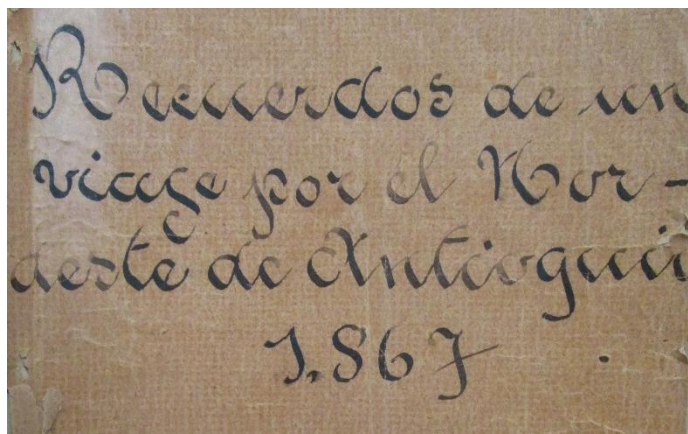 Recuerdos de un
viage por el Nor-
deste de Antioquia
1.867